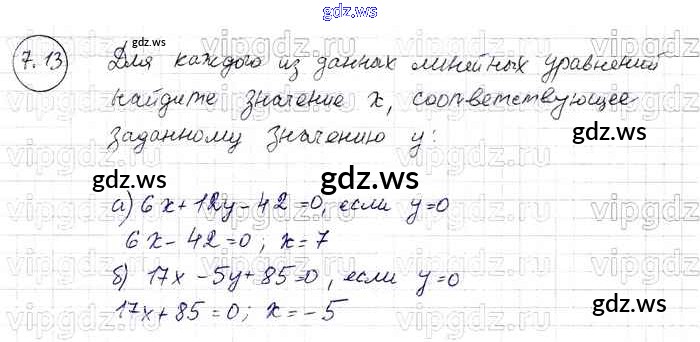 gdz.ws
7.13 Для каждого из данных линейных уравнений
найдите значение x, соответствующее
заданному значению y:
а) 6x+12y-42=0, если y=0
6x-42=0; x=7
б) 17x-5y+85=0, если y=0
17x+85=0; x=-5
gdz.ws
gdz.ws
gdz.ws
gdz.ws
gdz.ws
gdz.ws
vipgdz.ru
vipgdz.ru
vipgdz.ru